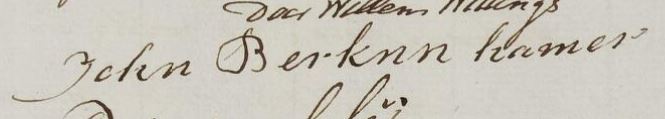 Door Willem Willings
John Berknn kamer